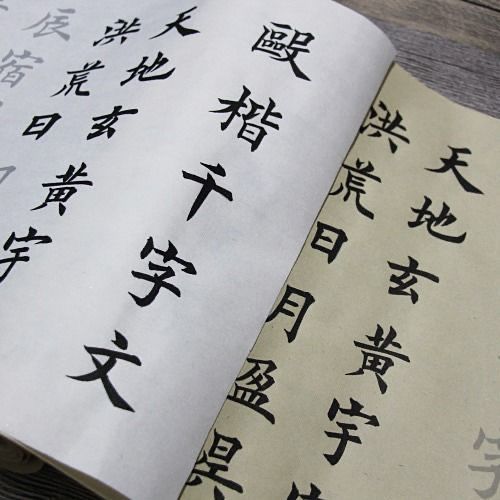 毆楷千字文
天地玄黄宇
洪荒日
辰宿
天地玄黄宇
洪荒日月盈昃